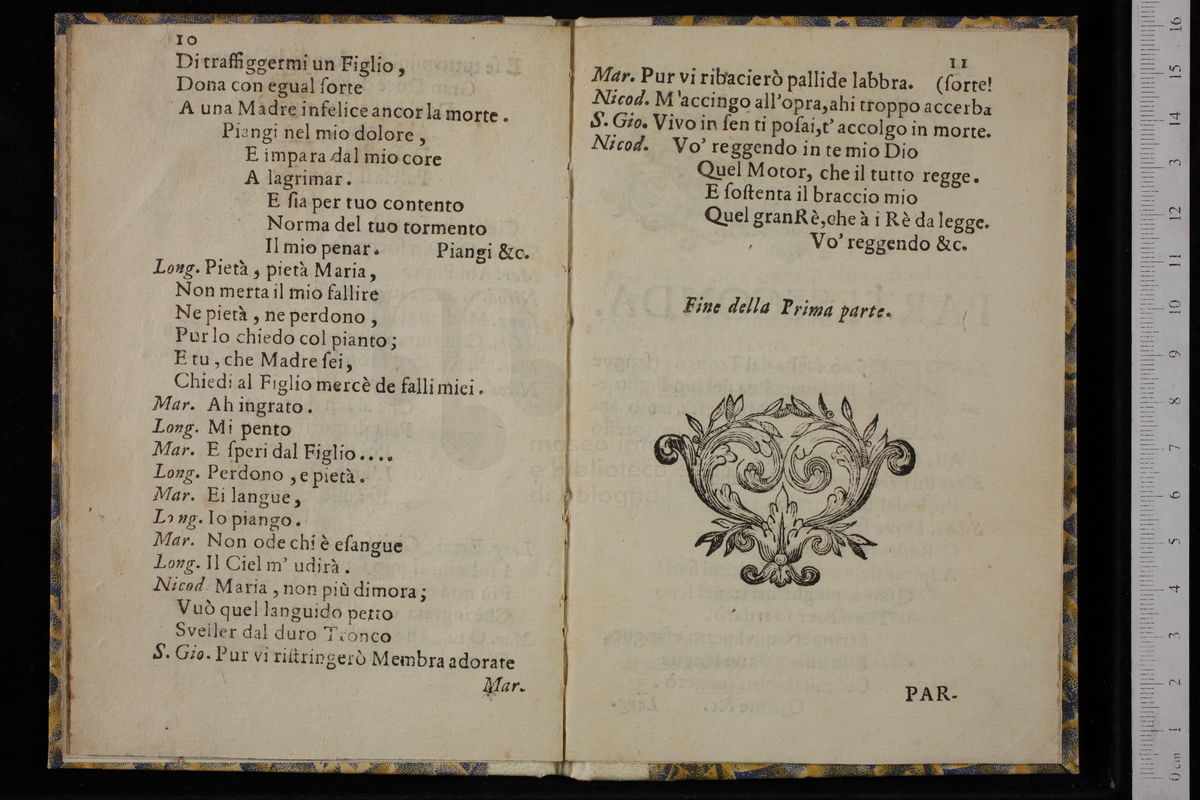 10
Di traffiggermi un Figlio,
Dona con egual ſorte
A una Madre infelice ancor la morte.
Piangi nel mio dolore,
E impara dal mio core
A lagrimar.
E ſia per tuo contento
Norma del tuo tormento
Il mio penar. Piangi &c.
Long. Pietà, pietà Maria,
Non merta il mio fallire
Ne pietà, ne perdono,
Pur lo chiedo col pianto;
E tu, che Madre ſei,
Chiedi al Figlio mercè de falli miei.
Mar. Ah ingrato.
Long. Mi pento
Mar. E ſperi dal Figlio....
Long. Perdono, e pietà.
Mar. Ei langue,
Long. Io piango.
Mar. Non ode chi è eſangue
Long. Il Ciel m' udirà.
Nicod Maria, non più dimora;
Vuò quel languido petto
Sveller dal duro Tronco
S. Gio. Pur vi riſtringerò Membra adorate
Mar.
11
Mar. Pur vi ribacierò pallide labbra. (ſorte!
Nicod. M'accingo all'opra, ahi troppo accerba
S. Gio. Vivo in ſen ti poſai, t' accolgo in morte.
Nicod. Vo' reggendo in te mio Dio
Quel Motor, che il tutto regge.
E ſoſtenta il braccio mio
Quel gran Rè, che à i Rè da legge.
Vo' reggendo &c.
Fine della Prima parte.
museo
e biblioteca
di bologna
PAR-
0 cm 1 2 3 4 5 6 7 8 9 10 11 12 13 14 15 16